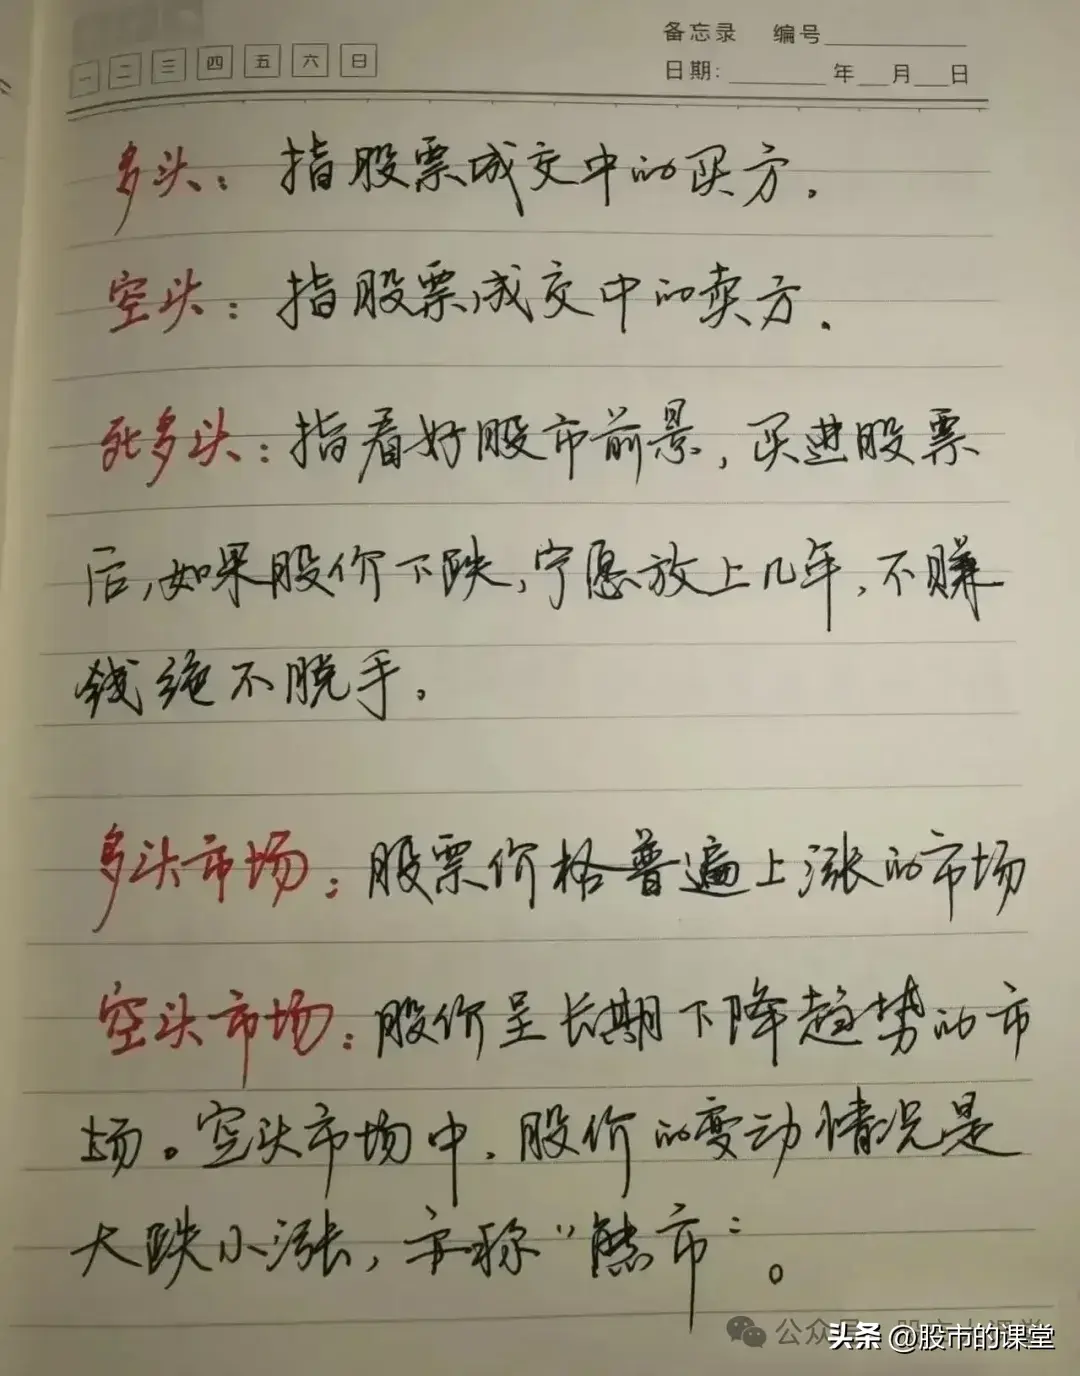 备忘录 编号
一 二 三 四 五 六 日
日期: 年 月 日
多头：指股票成交中的买方.
空头：指股票成交中的卖方.
死多头：指看好股市前景，买进股票
后，如果股价下跌，宁愿放上几年，不赚
钱绝不脱手.
多头市场：股票价格普遍上涨的市场
空头市场：股价呈长期下降趋势的市
场。空头市场中，股价的变动情况是
大跌小涨，亦称“熊市”。
公众号
头条 @股市的课堂